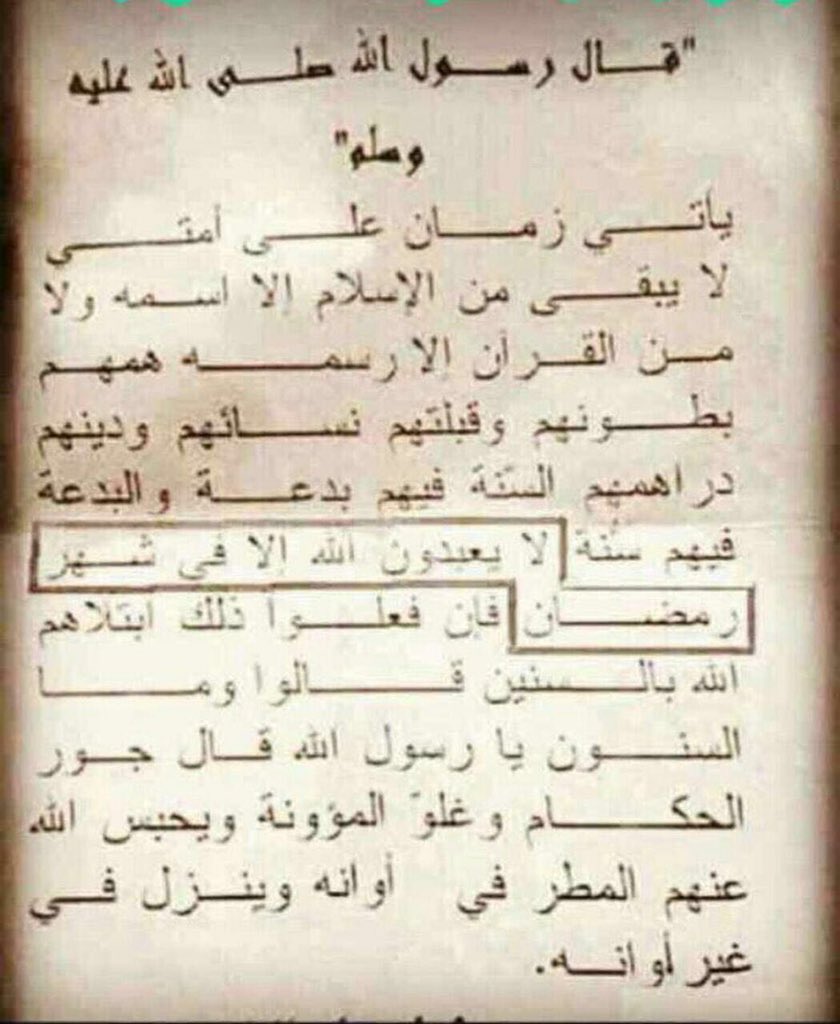 "قال رسول الله صلى الله عليه
وسلم"
يأتي زمان على أمتي
لا يبقى من الإسلام إلا اسمه ولا
من القرآن إلا رسمه همهم
بطونهم وقبلتهم نسائهم ودينهم
دراهمهم السنّة فيهم بدعة والبدعة
فيهم سنّة لا يعبدون الله إلا في شهر
رمضان فإن فعلوا ذلك ابتلاهم
الله بالسنين قالوا وما
السنون يا رسول الله قال جور
الحكام وغلوّ المؤونة ويحبس الله
عنهم المطر في أوانه وينزل في
غير أوانه.